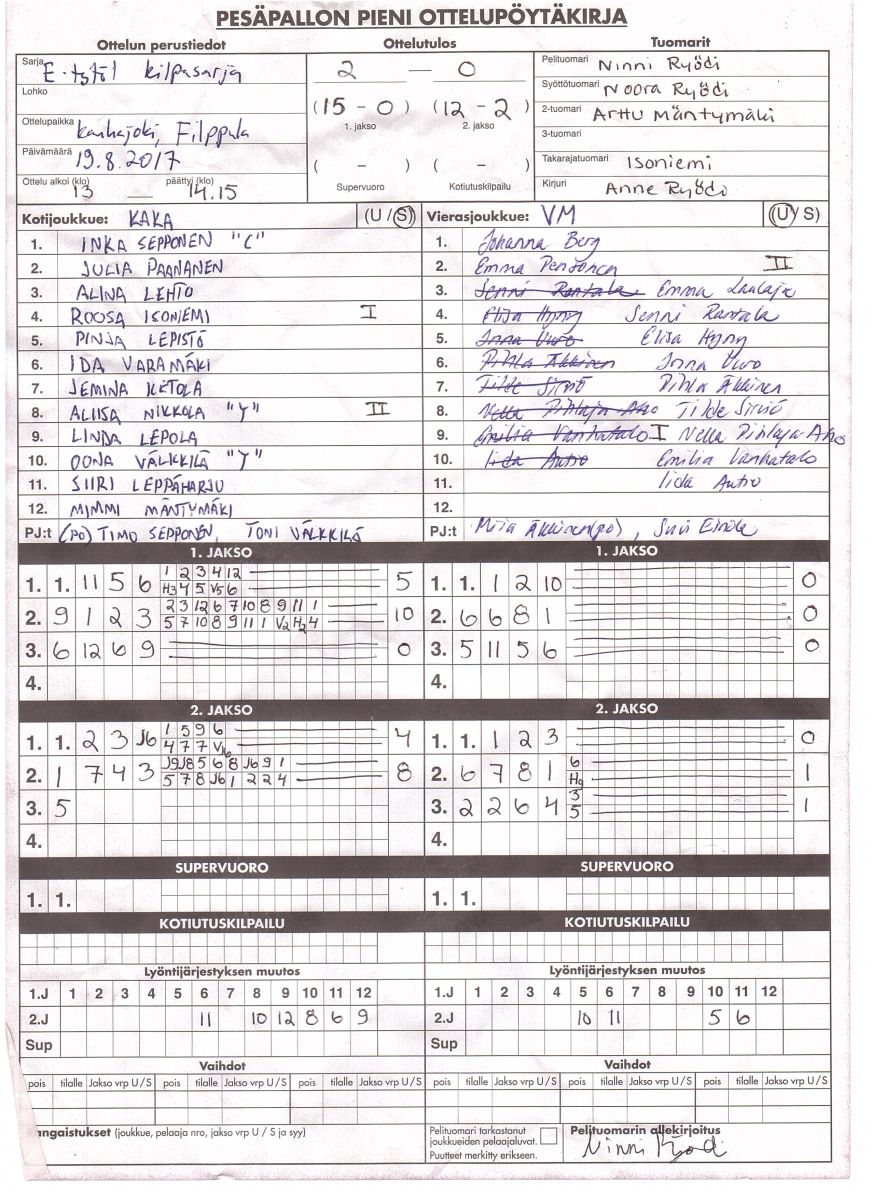 PESÄPALLON PIENI OTTELUPÖYTÄKIRJA
Ottelun perustiedot Ottelutulos Tuomarit
Sarja E-tytöt kilpasarja
Lohko
Ottelupaikka Kauhajoki, Filppula
Päivämäärä 19.8.2017
Ottelu alkoi (klo) 13 — päättyi (klo) 14.15
2 — 0
(15 - 0) (12 - 2)
1. jakso 2. jakso
( - ) ( - )
Supervuoro Kotiutuskilpailu
Pelituomari Ninni Ryödi
Syöttötuomari Noora Ryödi
2-tuomari Arttu Mäntymäki
3-tuomari
Takarajatuomari Isoniemi
Kirjuri Anne Ryödi
Kotijoukkue: KAKA (U / S)
1. INKA SEPPONEN "C"
2. JULIA PAANANEN
3. ALINA LEHTO
4. ROOSA ISONIEMI I
5. PINJA LEPISTÖ
6. IDA VARAMÄKI
7. JEMINA KETOLA
8. ALIISA NIKKOLA "Y" II
9. LINDA LEPOLA
10. OONA VÄLKKILÄ "Y"
11. SIIRI LEPPÄHARJU
12. MIMMI MÄNTYMÄKI
PJ:t (PO) TIMO SEPPONEN, TONI VÄLKKILÄ
Vierasjoukkue: VM (U / S)
1. Johanna Berg
2. Emma Pentonen II
3. Senni Rantala Emma Laulaja
4. Elisa Hyny Senni Rantala
5. Jonna Uvo Elisa Hyny
6. Pihla Äkkinen Jonna Uvo
7. Tilde Sirviö Pihla Äkkinen
8. Nella Pihlaja-Aho Tilde Sirviö
9. Emilia Vanhatalo I Nella Pihlaja-Aho
10. Iida Autio Emilia Vanhatalo
11. Iida Autio
12.
PJ:t Miia Äkkinen (po), Suvi
1. JAKSO 1. JAKSO
1. 1. 11 5 6 1 2 3 4 12 5
H3 4 5 V5 6
2. 9 1 2 3 2 3 12 6 7 10 8 9 11 1 10
5 7 10 8 9 11 1 V2 H2 4
3. 6 12 6 9 0
4.
1. 1. 1 2 10 0
2. 6 6 8 1 0
3. 5 11 5 6 0
4.
2. JAKSO 2. JAKSO
1. 1. 2 3 J6 1 5 9 6 4
4 7 7 V6
2. 1 7 4 3 J9 J8 5 6 8 J6 9 1 8
5 7 8 J6 1 2 2 4
3. 5
4.
1. 1. 1 2 3 0
2. 6 7 8 1 6 1
H9
3. 2 2 6 4 3 1
5
4.
SUPERVUORO SUPERVUORO
1. 1. 1. 1.
KOTIUTUSKILPAILU KOTIUTUSKILPAILU
Lyöntijärjestyksen muutos Lyöntijärjestyksen muutos
1.J 1 2 3 4 5 6 7 8 9 10 11 12 1.J 1 2 3 4 5 6 7 8 9 10 11 12
2.J 11 10 12 8 6 9 2.J 10 11 5 6
Sup Sup
Vaihdot Vaihdot
pois tilalle Jakso vrp U / S pois tilalle Jakso vrp U / S pois tilalle Jakso vrp U / S pois tilalle Jakso vrp U / S pois tilalle Jakso vrp U / S pois tilalle Jakso vrp U / S
angaistukset (joukkue, pelaaja nro, jakso vrp U / S ja syy)
Pelituomari tarkastanut
joukkueiden pelaajaluvat.
Puutteet merkitty erikseen.
Pelituomarin allekirjoitus
Ninni Ryödi